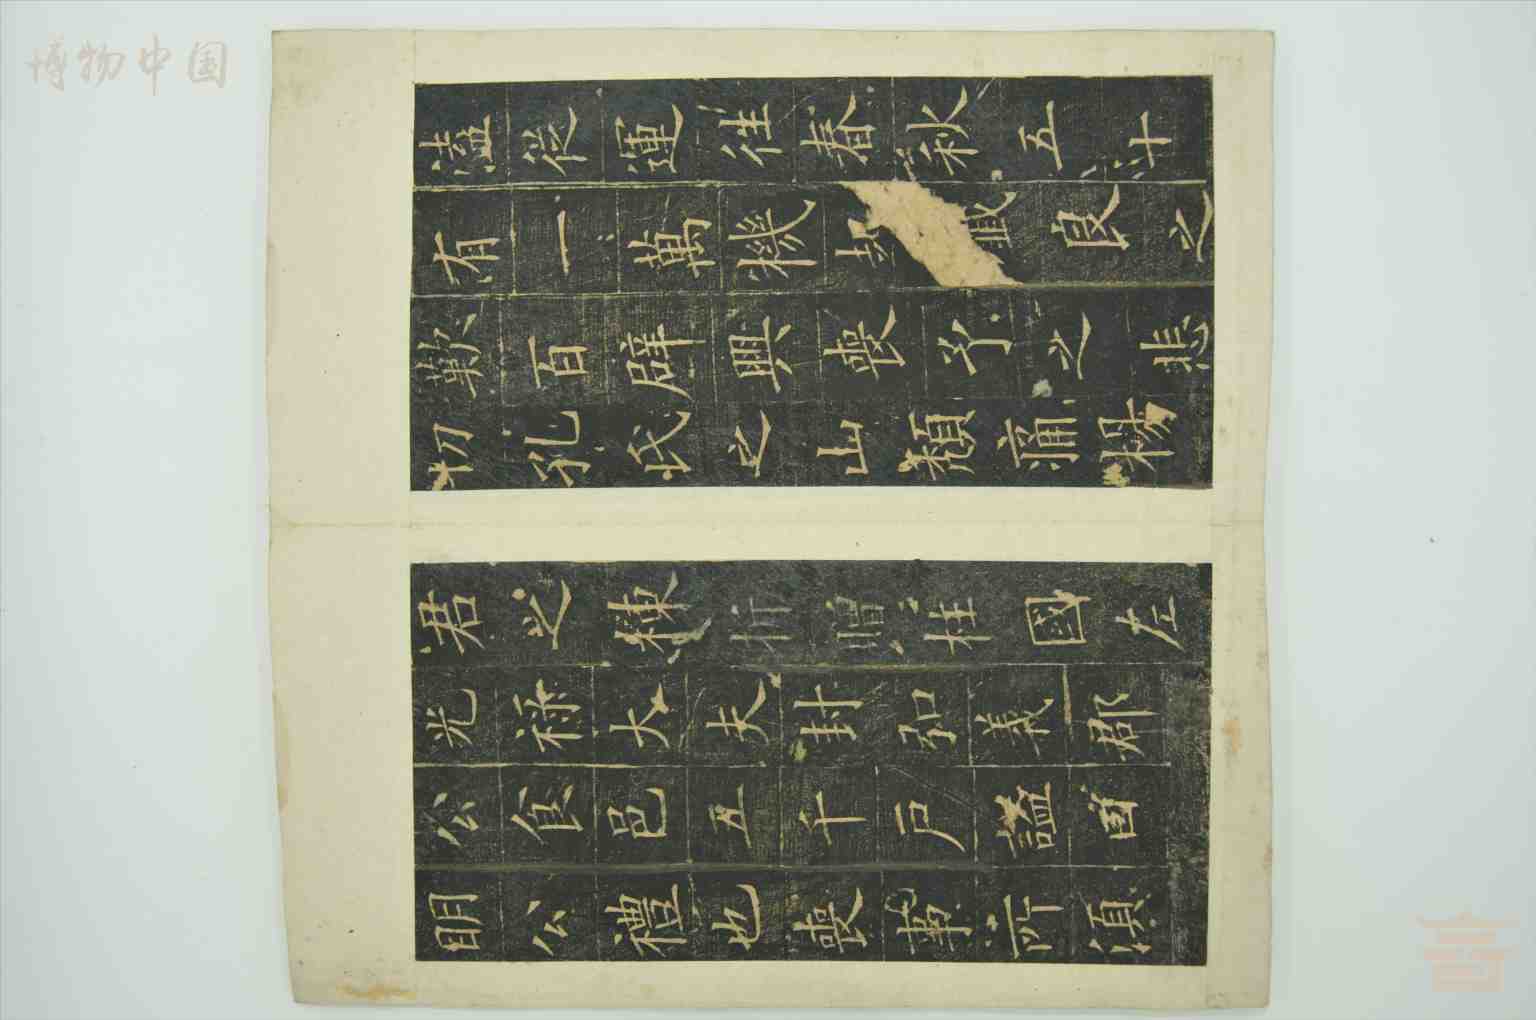 溘從運往春秋五十
有一萬機良之
歎百辟興喪予之悲
切孔氏之山頹痛楊
君之棟折贈柱國左
光祿大夫封弘義郡
公食邑五千戶謚曰
明公禮也喪事所須
博物中国